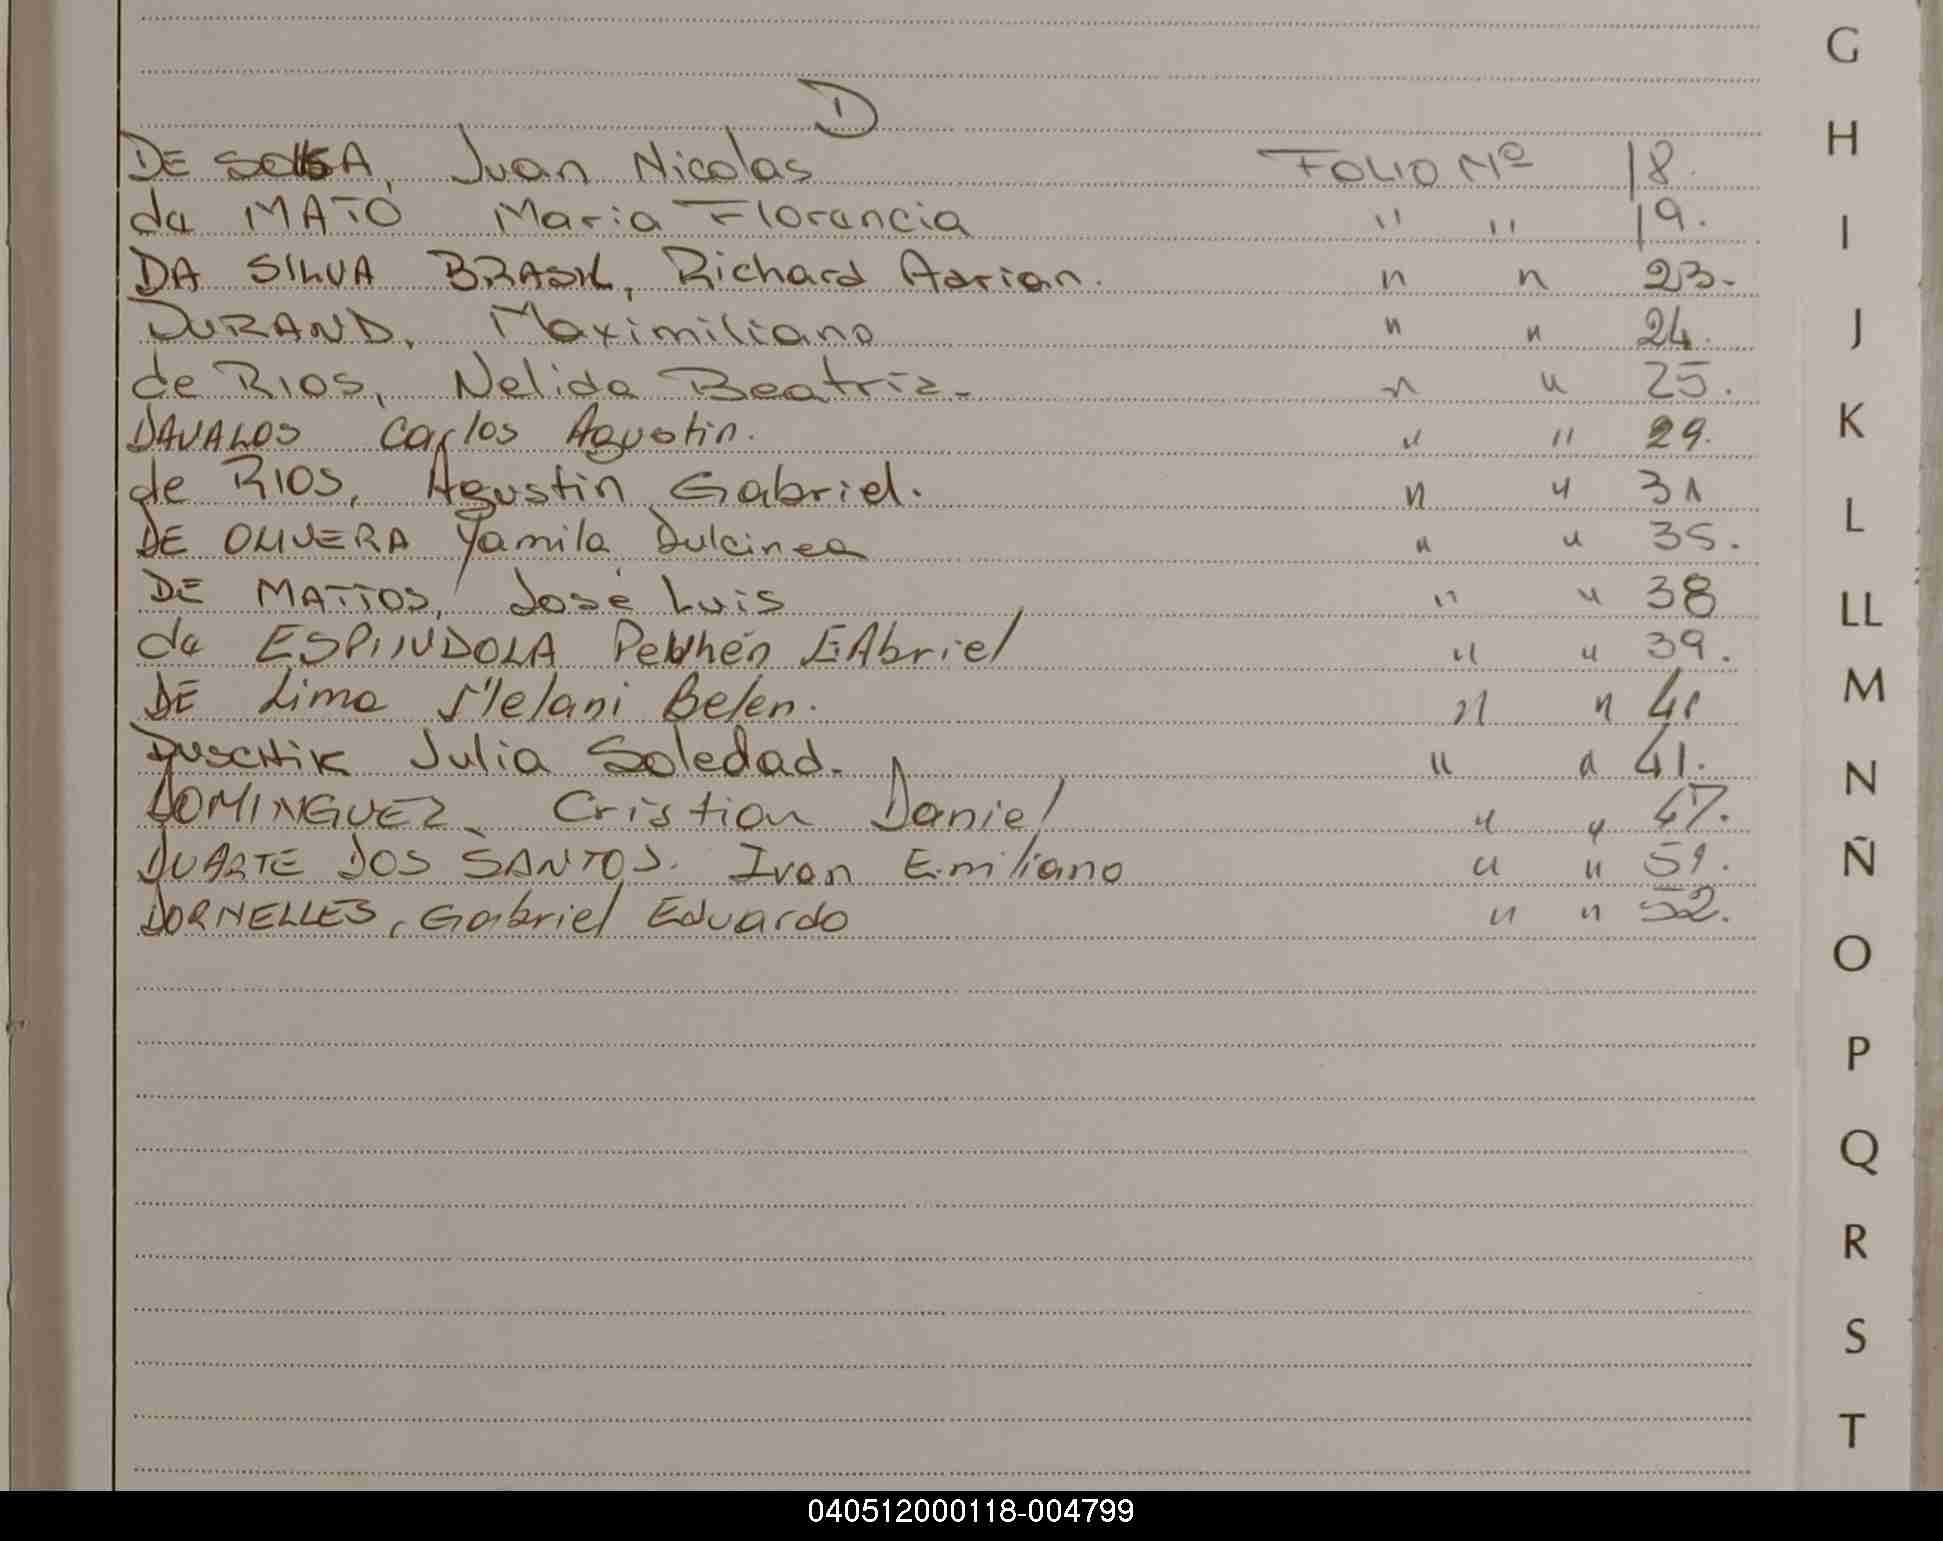 D
DE SOUSA, Juan Nicolas FOLIO Nº 18.
da MATO Maria Florencia " " 19.
DA SILVA BRASIL, Richard Adrian. " " 23.
DURAND, Maximiliano " " 24.
de RIOS, Nelida Beatriz. " " 25.
DAVALOS Carlos Agustin. " " 29.
de RIOS, Agustin Gabriel. " " 31
DE OLIVERA Yamila Dulcinea " " 35.
DE MATTOS, José Luis " " 38
da ESPINDOLA GAbriel " " 39.
DE Lima Melani Belen. " " 41
DUSCHIK Julia Soledad. " " 41.
DOMINGUEZ Cristian Daniel " " 47.
DUARTE DOS SANTOS. Ivan Emiliano " " 51.
DORNELLES, Gabriel Eduardo " " 52.
G
H
I
J
K
L
LL
M
N
Ñ
O
P
Q
R
S
T
040512000118-004799